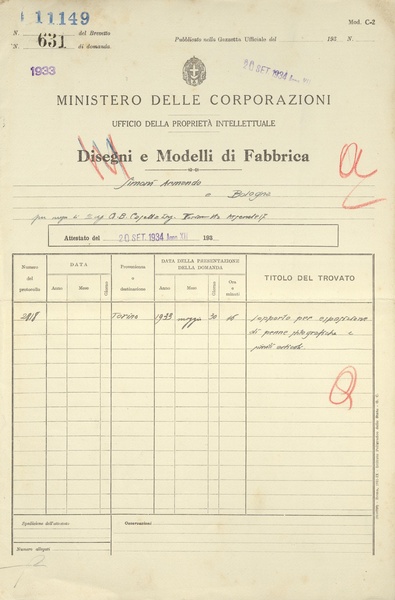 11149
N. del Brevetto
N. 631 di domanda
1933
Mod. C-2
Pubblicato nella Gazzetta Ufficiale del 193 N.
20 SET. 1934 Anno XII
MINISTERO DELLE CORPORAZIONI
UFFICIO DELLA PROPRIETÀ INTELLETTUALE
Disegni e Modelli di Fabbrica
Simoni Armando
a Bologna
Attestato del 20 SET. 1934 Anno XII 193
Numero del protocollo
DATA
Anno Mese Giorno
Provenienza e destinazione
DATA DELLA PRESENTAZIONE DELLA DOMANDA
Anno Mese Giorno Ora e minuti
TITOLO DEL TROVATO
Torino 1933 maggio 30 16 Supporto per esposizione
di penne stilografiche e
simili articoli
Spedizione dell'attestato
Osservazioni
Numero allegati